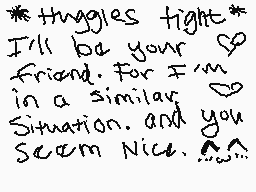 *Huggles tight*
I'll be your
friend. For I'm
in a similar
Situation. and you
Seem Nice. ^w^